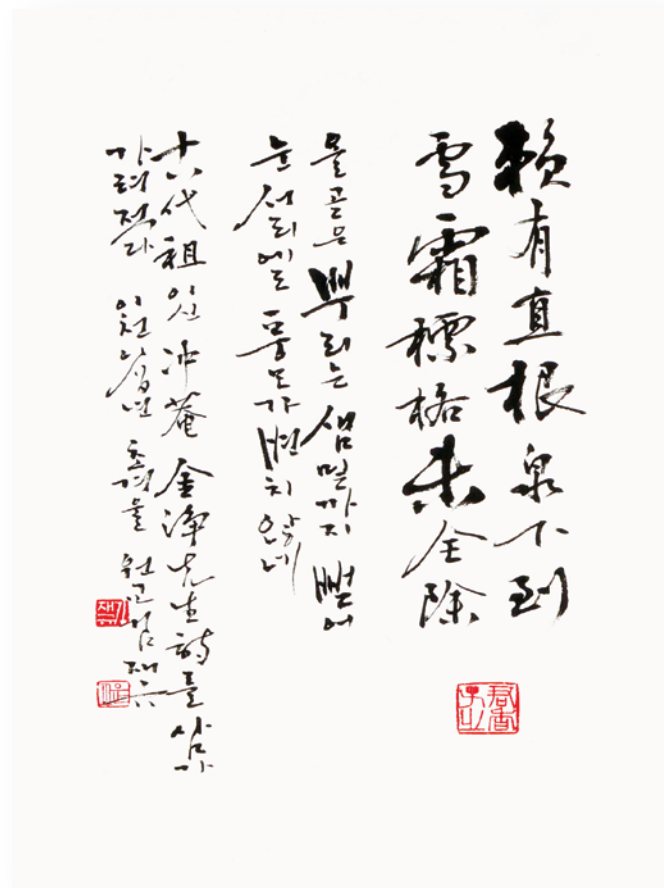 賴有直根泉下到
雪霜標格未全除
올곧은 뿌리는 샘밑까지 뻗어
눈서리에도 풍모가 변치 않네
十六代祖이신 冲菴 金淨先生詩를 삼가
가려적다 이천 년 초겨울 김재